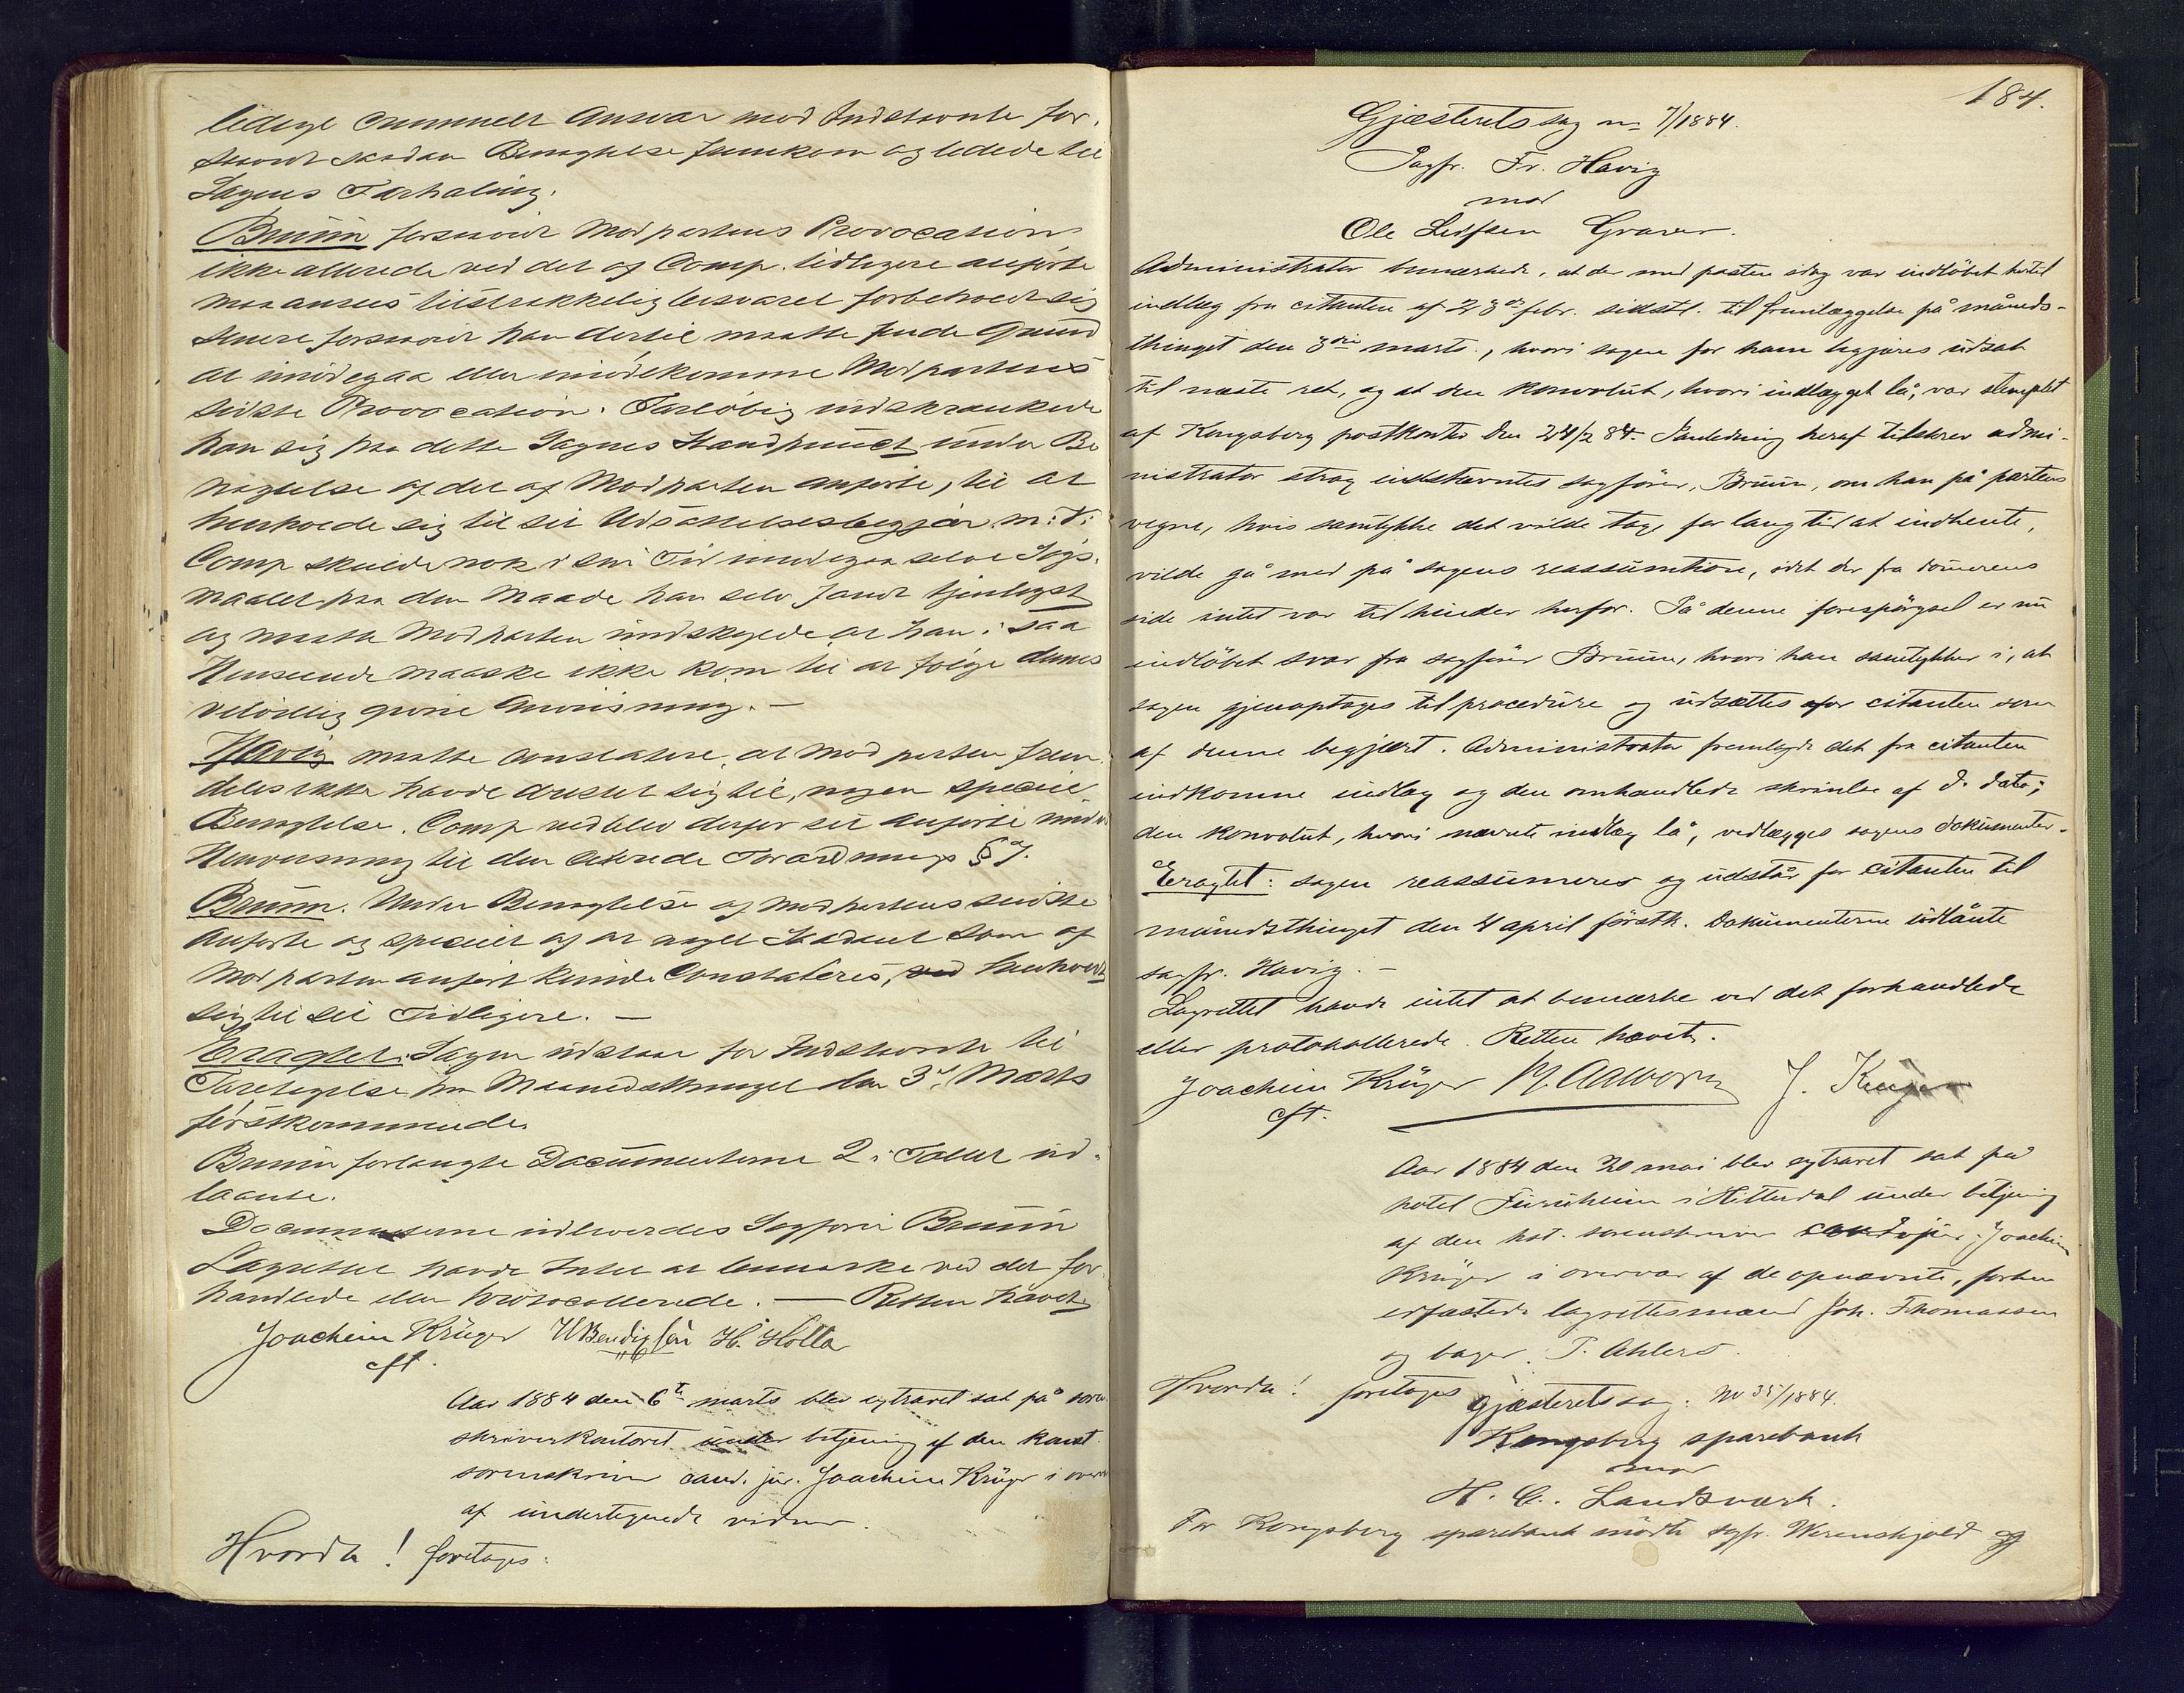 ledige Ansvar mod Indstevnte for,
saavidt saadan Benegtelse fremkom og ledede til
Sagens Forhaling.
Bruun forsaavidt Modpartens Provocation
ikke allerede ved det af Comp. tidligere anførte
maa ansees tilstrækkelig besvaret forbeholdt sig
senere forsaavidt han dertil maatte finde Grund
at imødegaa eller imødekomme Modpartens
sidste Provocation. Foreløbig indskrænkede
han sig paa dette Sagens Standpunct under Be
nægtelse af det af Modparten anførte, til at
henholde sig til sit Udsættelsesbegjær m: V:
Comp skulde nok i sin Tid imødegaa selve Søgs-
maalet paa den Maade han selv fandt tjenligst
og maatte Modparten undskylde at han i saa
Henseende maaske ikke kom til at følge dennes
velvillig givne Anvisning. —
Havig maatte constatere, at Modparten frem
deles ikke havde sig til, nogen speciel
Benægtelse. Comp vedblev derfor sit anførte under
Henvisning til den Forordnings § 7.
Bruun. Under Benægtelse af Modpartens sidste
Anførte og specielt af at noget saadant som af
Modparten anført kunde Constateres, henholdt
sig til sit Tidligere. —
Eragtet: Sagen udstaar for Indstevnte til
Foretagelse paa Maanedsthinget den 3d. Marts
førstkommende.
Bruun forlangte Documenterne 2 i Tallet ud-
laante.
Documenterne udleverdes Sagfører Bruun
Lagrettet havde Intet at bemærke ved det for
handlede eller protocollerede. — Retten hævet.
Joachim Krüger H. Holta
cft.
Aar 1884 den 6te marts blev extraret sat på soren
skriverkontoret under betjening af den konst.
sorenskriver cand. jur. Joachim Krüger i overvær
af undertegnede vidner.
Hvorda! foretoges:
184.
Gjæsteretssag no 7/1884.
Sagfr. Fr. Havig
mod
Ole Leifsen Graver.
Administrator bemærkede, at der med posten idag var indløbet hertil
indlæg fra citanten af 23de febr. sidstl. til fremlæggelse på måneds-
thinget den 3die marts., hvori sagen for ham begjæres udsat
til næste ret, og at den konvolut, hvori indlægget lå, var stemplet
af Kongsberg postkontor den 24/2 84. I anledning heraf tilskrev admi-
nistrator strax indstevntes sagfører, Bruun, om han på partens
vegne, hvis samtykke det vilde tage for lang tid at indhente,
vilde gå med på sagens reassumtion, idet der fra dommerens
side intet var til hinder herfor. På denne forespørgsel er nu
indløbet svar fra sagfører Bruun, hvori han samtykker i, at
sagen gjenoptages til procedure og udsættes for citanten som
af denne begjært. Administrator fremlagde det fra citanten
indkomne indlæg og den omhandlede skrivelse af d. dato;
den konvolut, hvori nævnte indlæg lå, vedlægges sagens dokumenter.
Eragtet: sagen reassumeres og udstår for citanten til
månedsthinget den 4 april førstk. Dokumenterne udlånte
sagfr. Havig. —
Lagrettet havde intet at bemærke ved det forhandlede
eller protokollerede. Retten hævet.
Joachim Krüger J.
cft.
Aar 1884 den 20 mai blev extraret sat på
hotel Furuheim i Hitterdal under betjening
af den kst. sorenskriver cand. jur. Joachim
Krüger i overvær af de opnævnte, forhen
edfæstede lagrettesmænd Joh. Thomassen
og bager T. Ahlers.
Hvorda! foretoges
gjæsteretssag. no 35/1884.
Kongsberg sparebank
mod
H. C. Landsværk.
For Kongsberg sparebank mødte sgfr. Werenskjold og